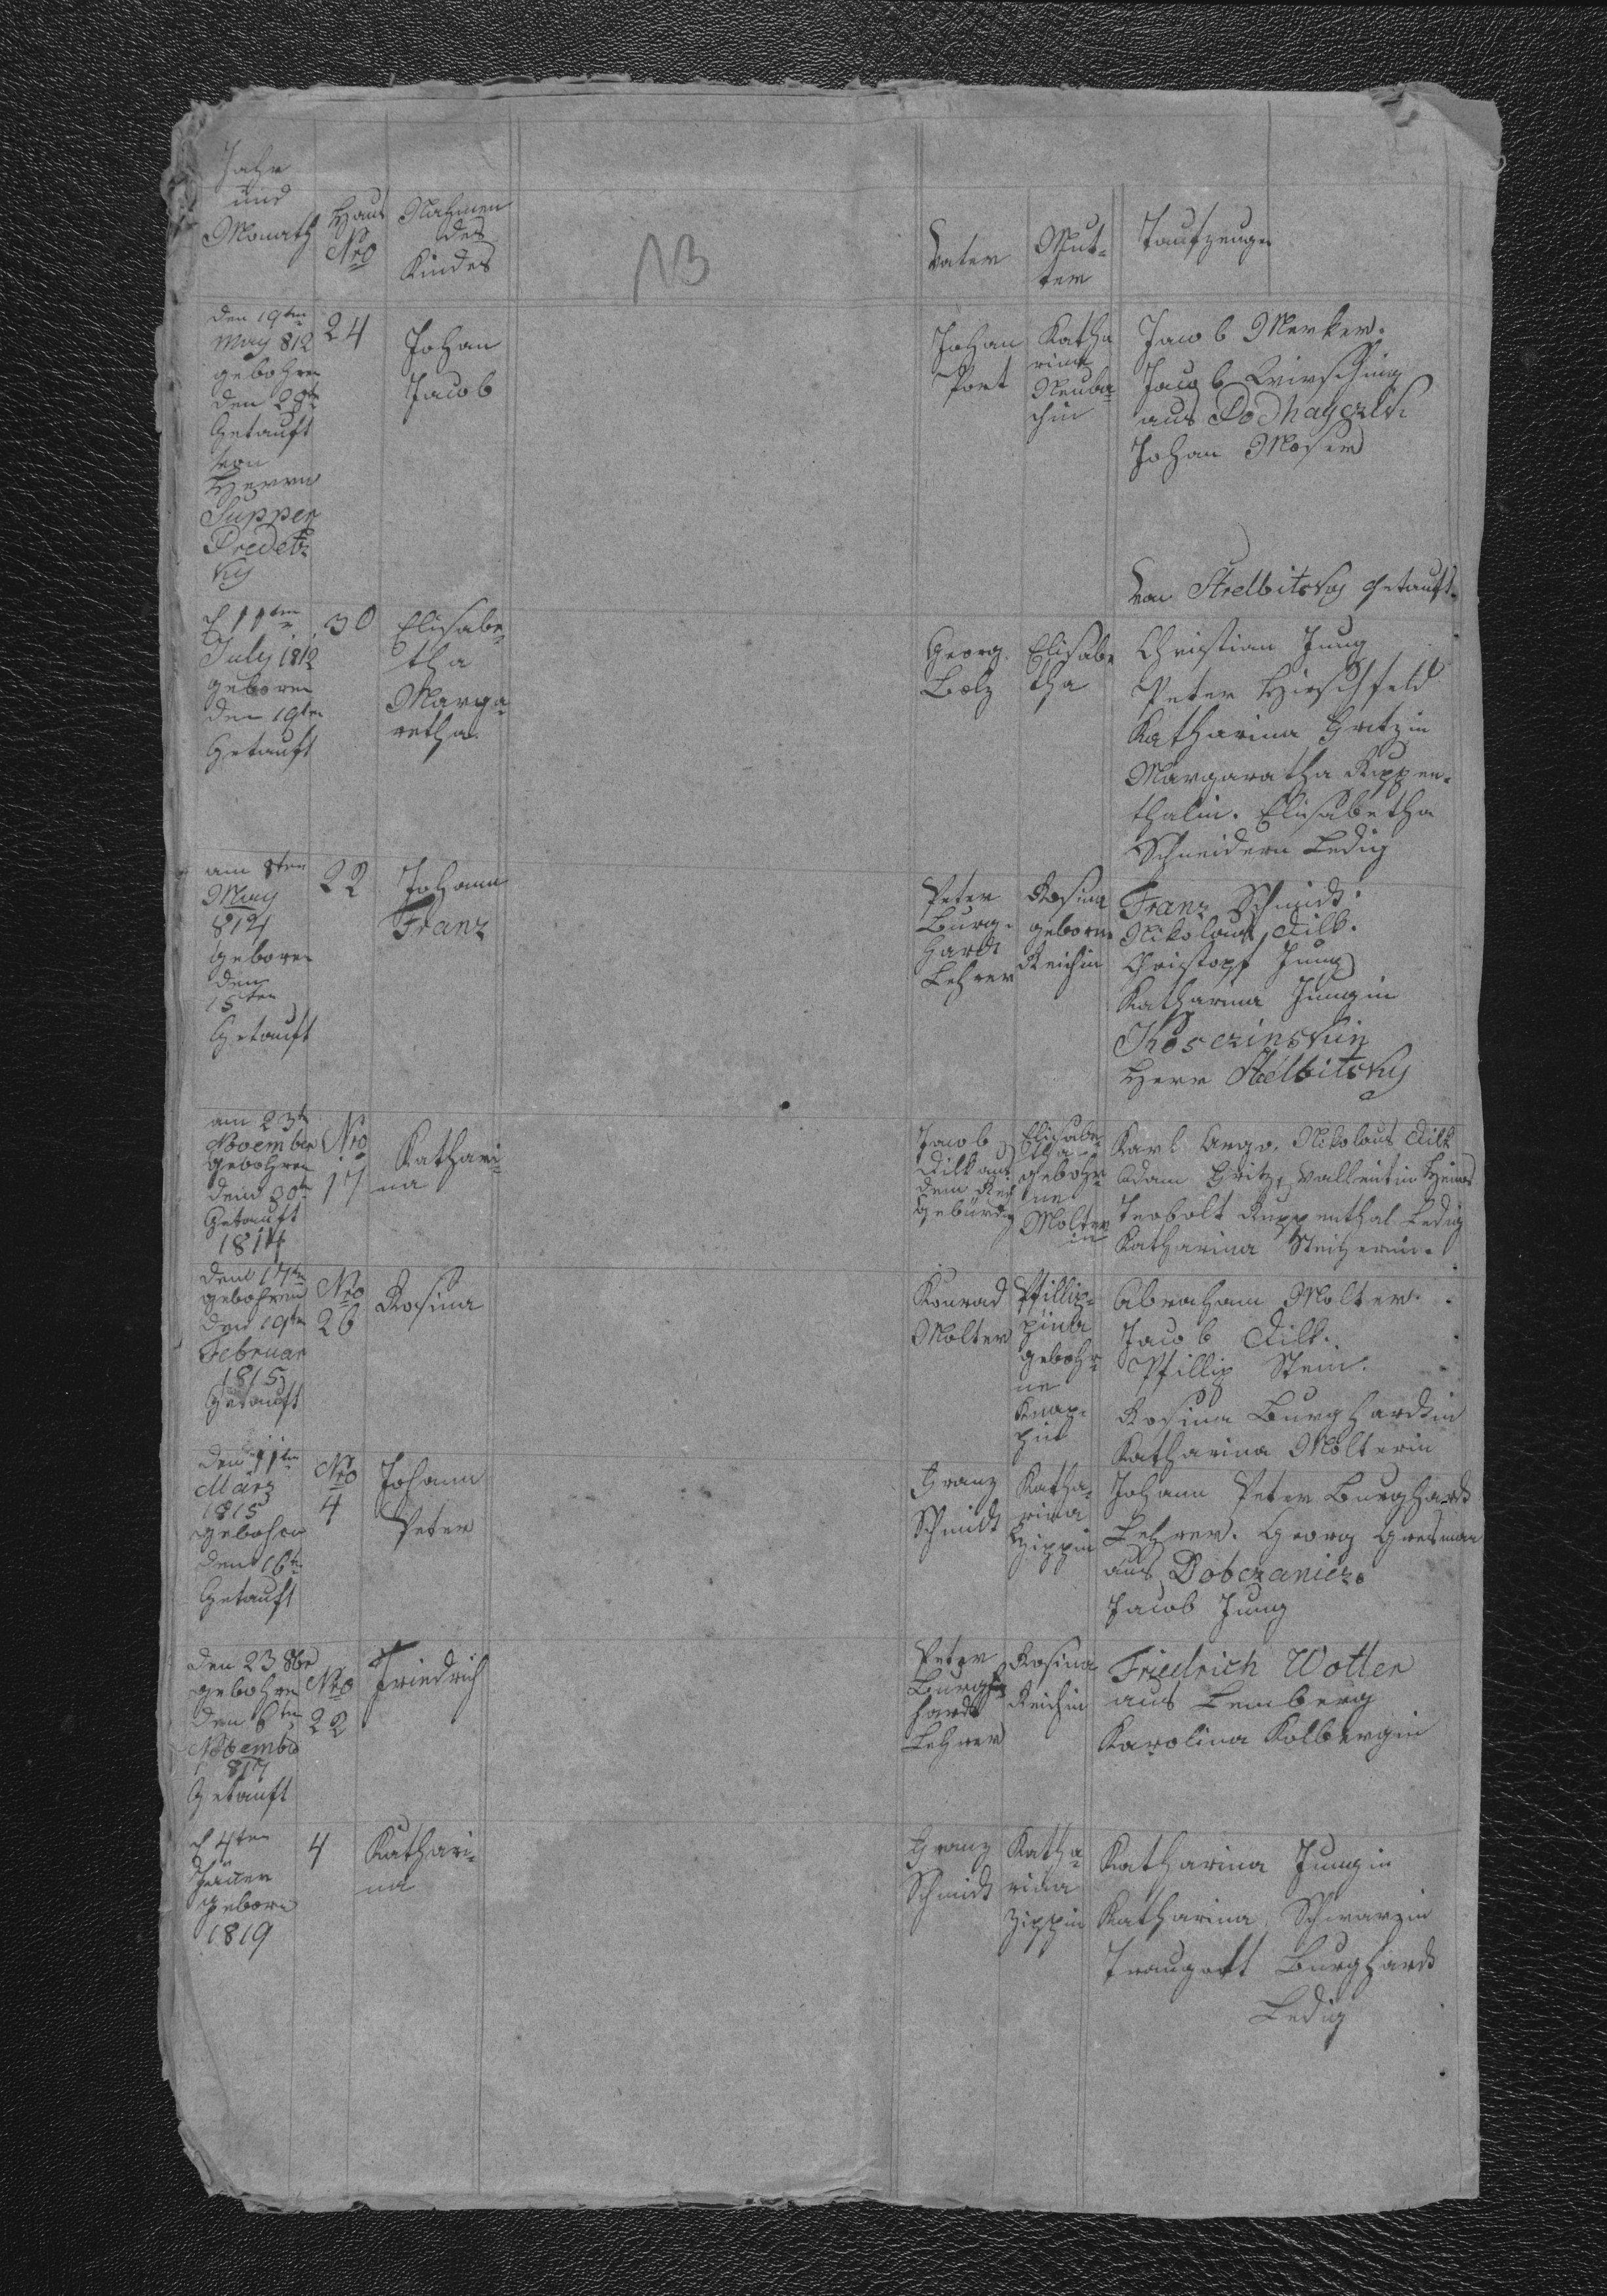 Jahr
und
Monath
Haus
Nro
Nahmen
des
Kindes
NB
Vater
Mut-
ter
Taufzeugen
den 19ten
May 812
gebohren
den 28ten
Getauft
von
Herrn
Supper
Predetz
ky
24
Johan
Jacob
Johan
Port
Katha
rina
Neuba
chin
Jacob Merker.
Jacob Wirsching
aus Podhayczki
Johan Moser
von Strelbitsky Getauft.
d 11ten
July 1812
geboren
den 19ten
Getauft
30
Elisabe-
tha
Marga-
retha.
Georg
Bolz
Elisabe
tha
Christian Jung
Peter Hirschfeld
Katharina Gritzin
Margaratha Ruppen-
thalin. Elisabetha
Schneidern Ledig
am 8ten
May
814
geboren
den
15ten
Getauft
22
Johann
Franz
Peter
Burg-
hardt
Lehrer
Rosina
geborne
Reichin
Franz Schmidt.
Nikolaus Dilk.
Christoph Jung
Katharina Jungin
Koserinskin
Herr Strelbitsky
am 23t
November
Gebohren
den 30t
Getauft
1814
Nro
17
Kathari-
na
Jacob
Dilk aus
dem
Gebürdig
Elisabe-
tha
gebohr-
ne
Molter
in
Karl Nikolaus Dilk
Adam Gritz, Vallentin
Teobolt Ruppenthal Ledig
Katharina
den 17ten
gebohren
den 19ten
Februar
1815
Getauft
Nro
26
Rosina
Konrad
Molter
Phillip-
pina
gebohr-
ne
Knap-
pin
Abraham Molter.
Jacob Dilk.
Phillip Stein.
Rosina Burghardtin
Katharina Molterin
den 11ten
März
1815
gebohren
den 16t
Getauft
Nro
4
Johann
Peter
Franz
Schmidt
Katha-
rina
Zippin
Johann Peter Burghardt
Lehrer. Georg
aus Dobczanicz.
Jacob Jung
den 23 8br
gebohren
den 8ten
Novembr
1817
Getauft
Nro
22
Friedrich
Peter
Burgh-
hardt
Lehrer
Rosina
Reichin
Friedrich Wotter
aus Lemberg
Karolina Kolbergin
d 4ten
Jäner
geborn
1819
4
Kathari-
na
Franz
Schmidt
Katha-
rina
Zippin
Katharina Jungin
Katharina Schwarzin
Traugott Burghardt
Ledig